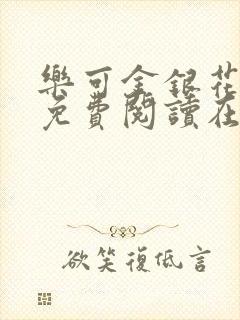 樂可金銀花
免費閱讀在
欲笑復低言